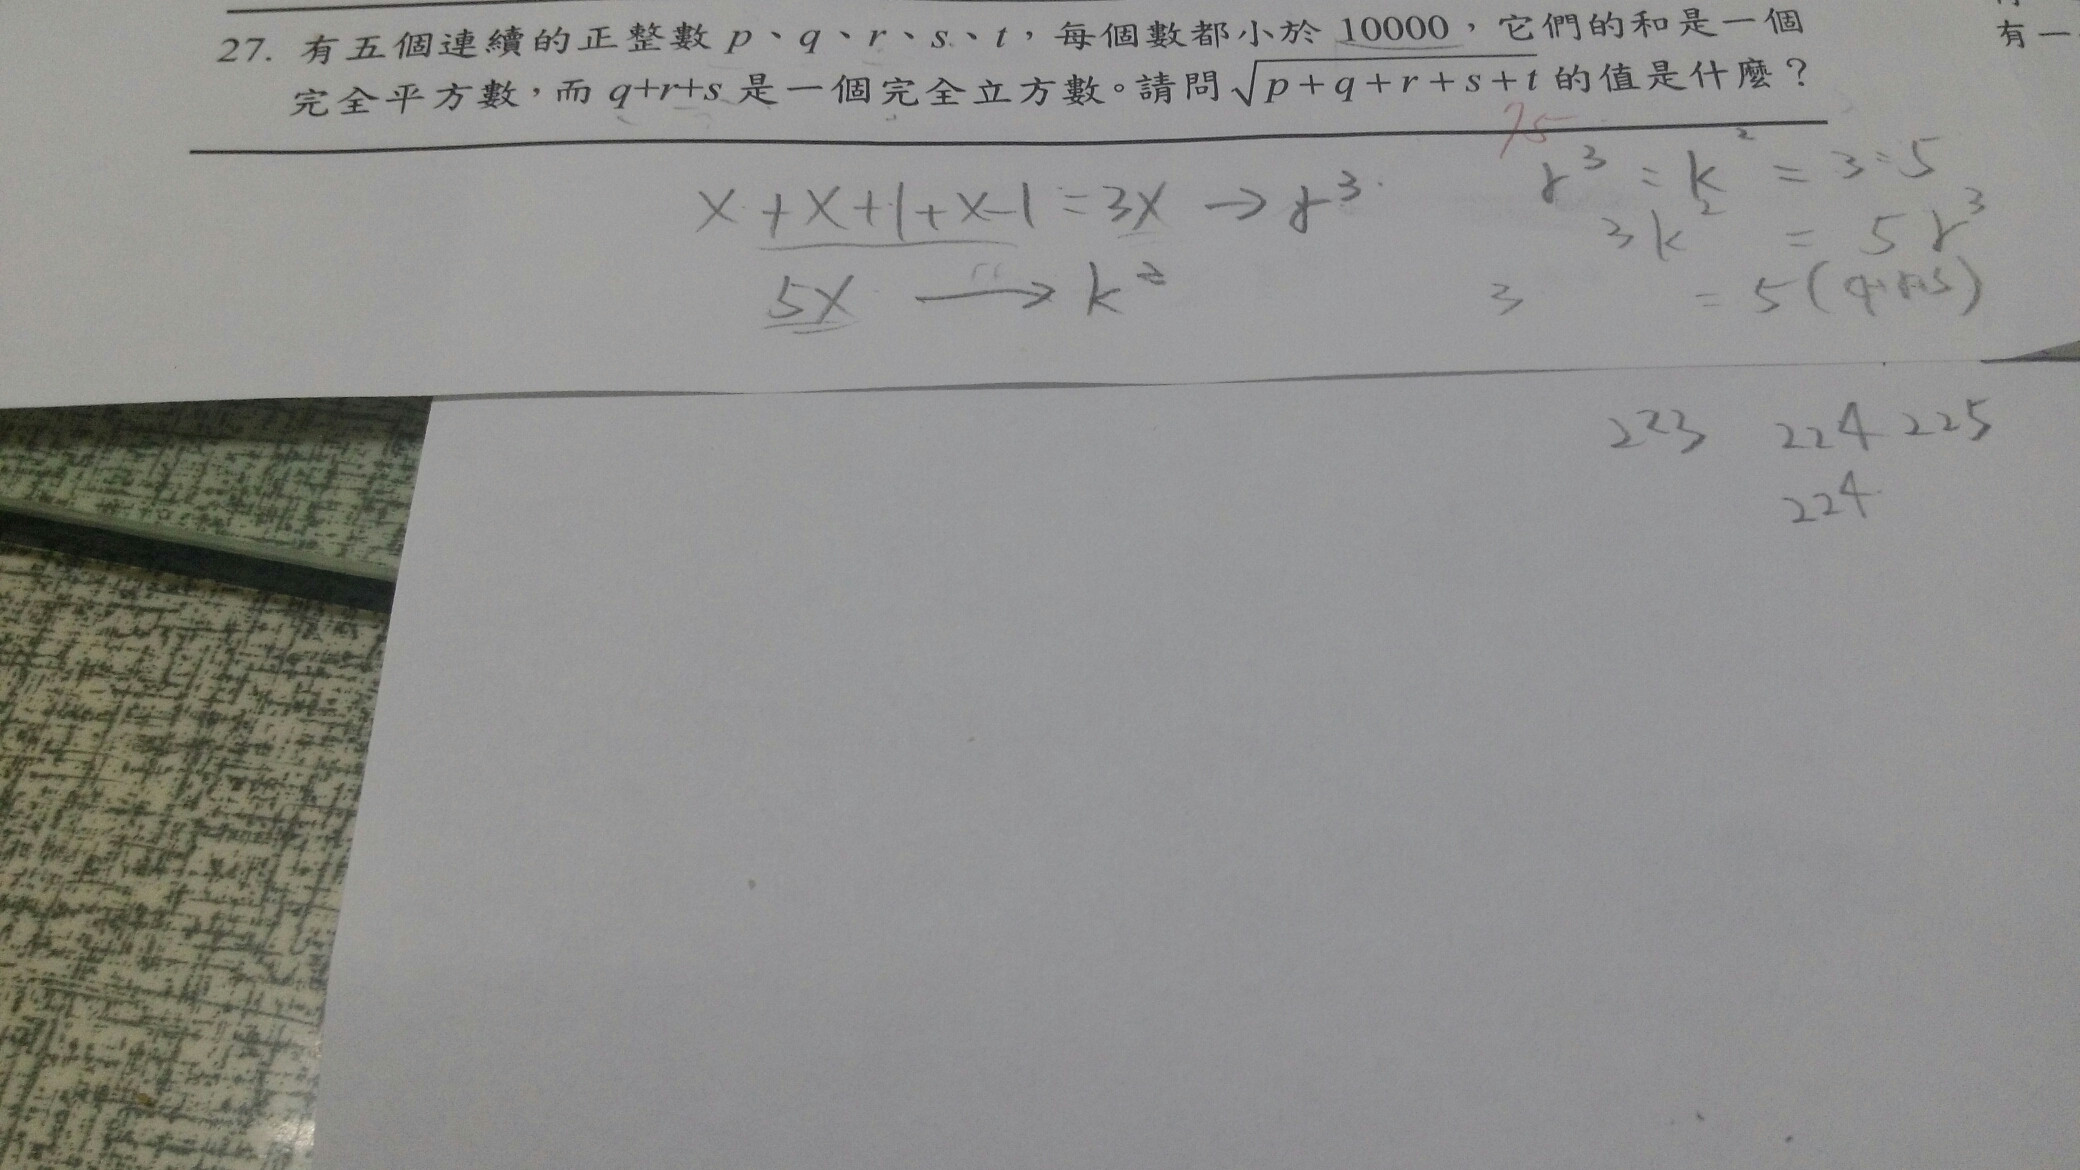 27. 有五個連續的正整數 p、q、r、s、t,每個數都小於 10000,它們的和是一個
完全平方數,而 q+r+s 是一個完全立方數。請問 √p+q+r+s+t 的值是什麼?
有一
75
x+x+1+x-1=3x→r³
5x→k²
r³=k²=3=5
3k²=5r³
3 =5(q+r+s)
223 224 225
224